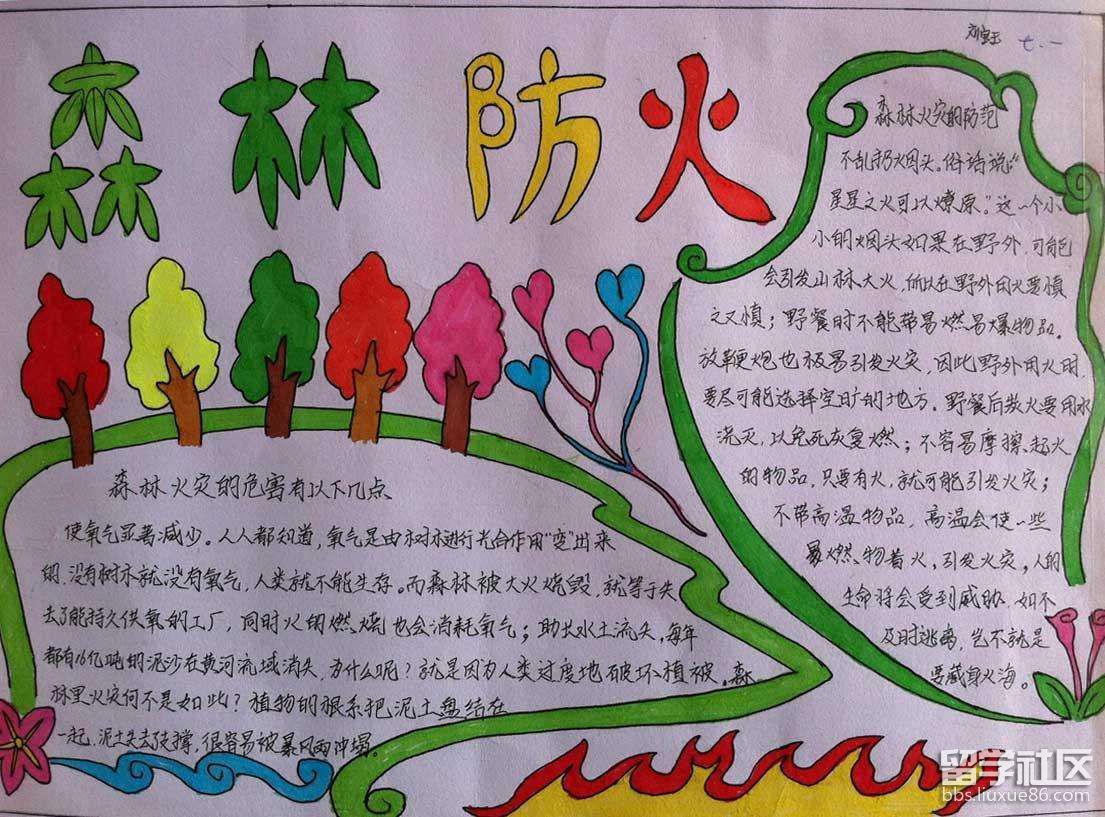 森林防火
七.一
森林火灾的防范
不乱扔烟头。俗话说:“
星星之火可以燎原。”这一个小
小的烟头如果在野外,可能
会引发山林大火,所以在野外用火要慎
之又慎;野餐时不能带易燃易爆物品。
放鞭炮也极易引发火灾,因此野外用火时,
要尽可能选择空旷的地方。野餐后散火要用水
浇灭,以免死灰复燃;不容易摩擦起火
的物品,只要有火,就可能引发火灾;
不带高温物品,高温会使一些
易燃物着火,引发火灾,人的
生命将会受到威胁,如不
及时逃离,岂不就是
要葬身火海。
森林火灾的危害有以下几点
使氧气显著减少。人人都知道,氧气是由树木进行光合作用“变”出来
的,没有树木就没有氧气,人类就不能生存。而森林被大火烧毁,就等于失
去了能持久供氧的工厂,同时火的燃烧也会消耗氧气;助长水土流失,每年
都有16亿吨的泥沙在黄河流域消失,为什么呢?就是因为人类过度地破坏植被。森
林里火灾何不是如此?植物的根系把泥土盘结在
一起,泥土失去支撑,很容易被暴风雨冲塌。
留学社区
bbs.liuxue86.com